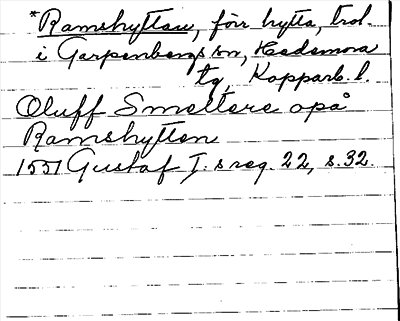 *Ramshyttan, förr hytta, trol.
i Garpenbergs sn, Hedemora
tg, Kopparb. l.
Oluff Smeltere opå
Ramshytten
1551 Gustaf I:s reg. 22, s. 32.